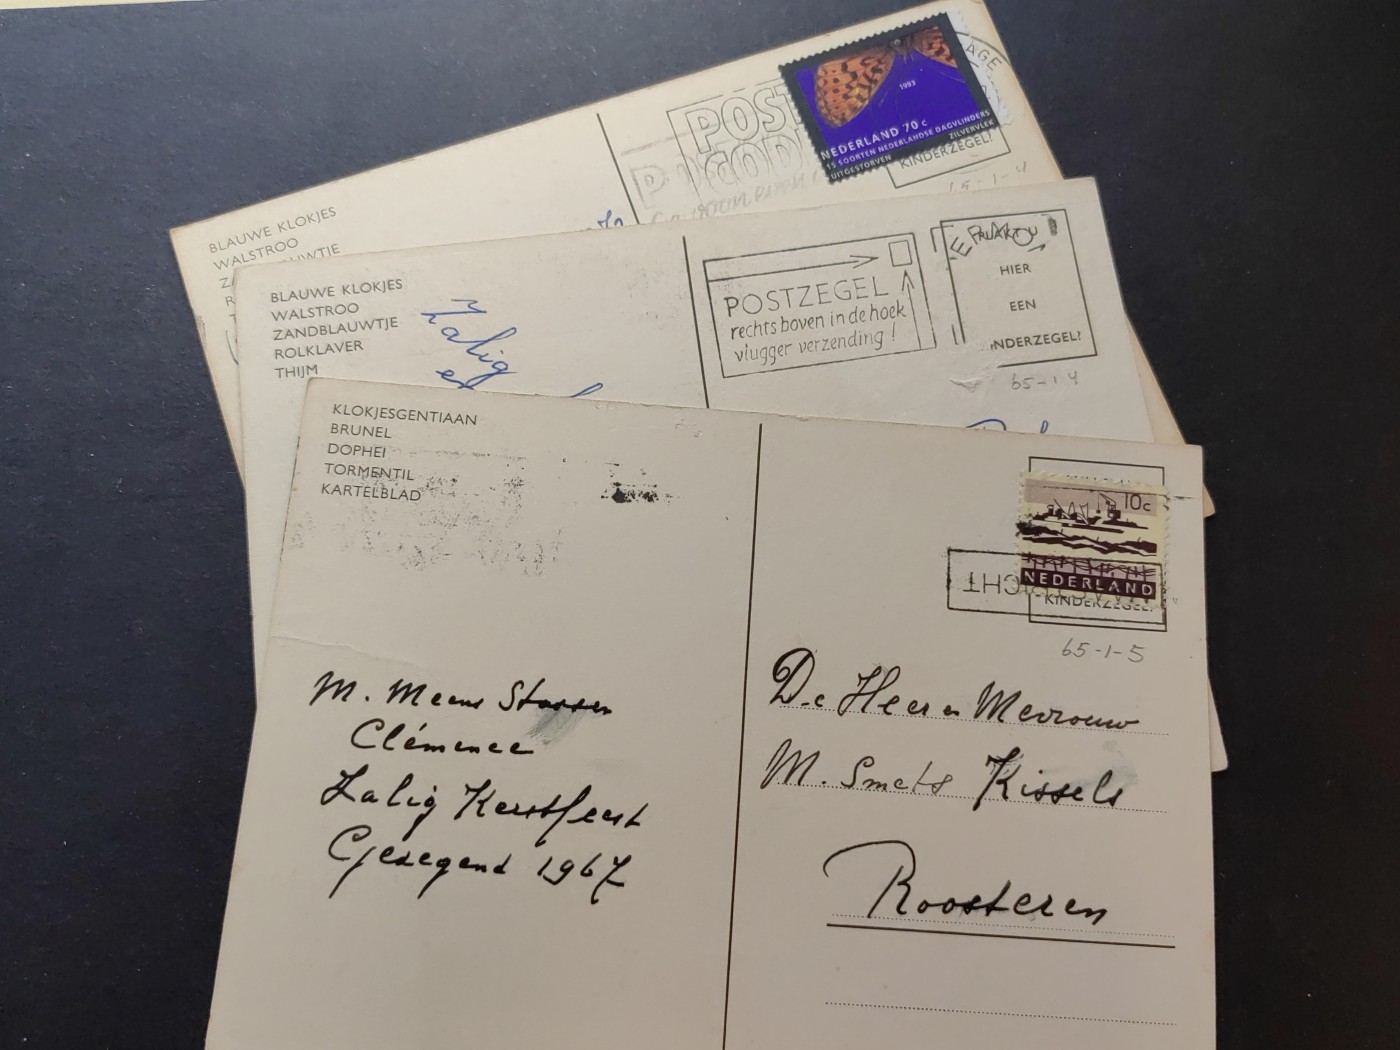 POST
POSTCODE
AGE
1993
NEDERLAND 70 c
15 SOORTEN NEDERLANDSE DAGVLINDERS
UITGESTORVEN ZILVERVLEK
KINDERZEGEL?
65-1-4
BLAUWE KLOKJES
WALSTROO
BLAUWE KLOKJES
WALSTROO
ZANDBLAUWTJE
ROLKLAVER
THIJM
Zalig
en
POSTZEGEL
rechts boven in de hoek
vlugger verzending!
PLAKT U
HIER
EEN
KINDERZEGEL?
65-1-4
KLOKJESGENTIAAN
BRUNEL
DOPHEI
TORMENTIL
KARTELBLAD
10c
NEDERLAND
KINDERZEGEL?
65-1-5
M. Meens Stassen
Clémence
Zalig Kerstfeest
Gezegend 1967
De Heer en Mevrouw
M. Smets Kissels
Roosteren